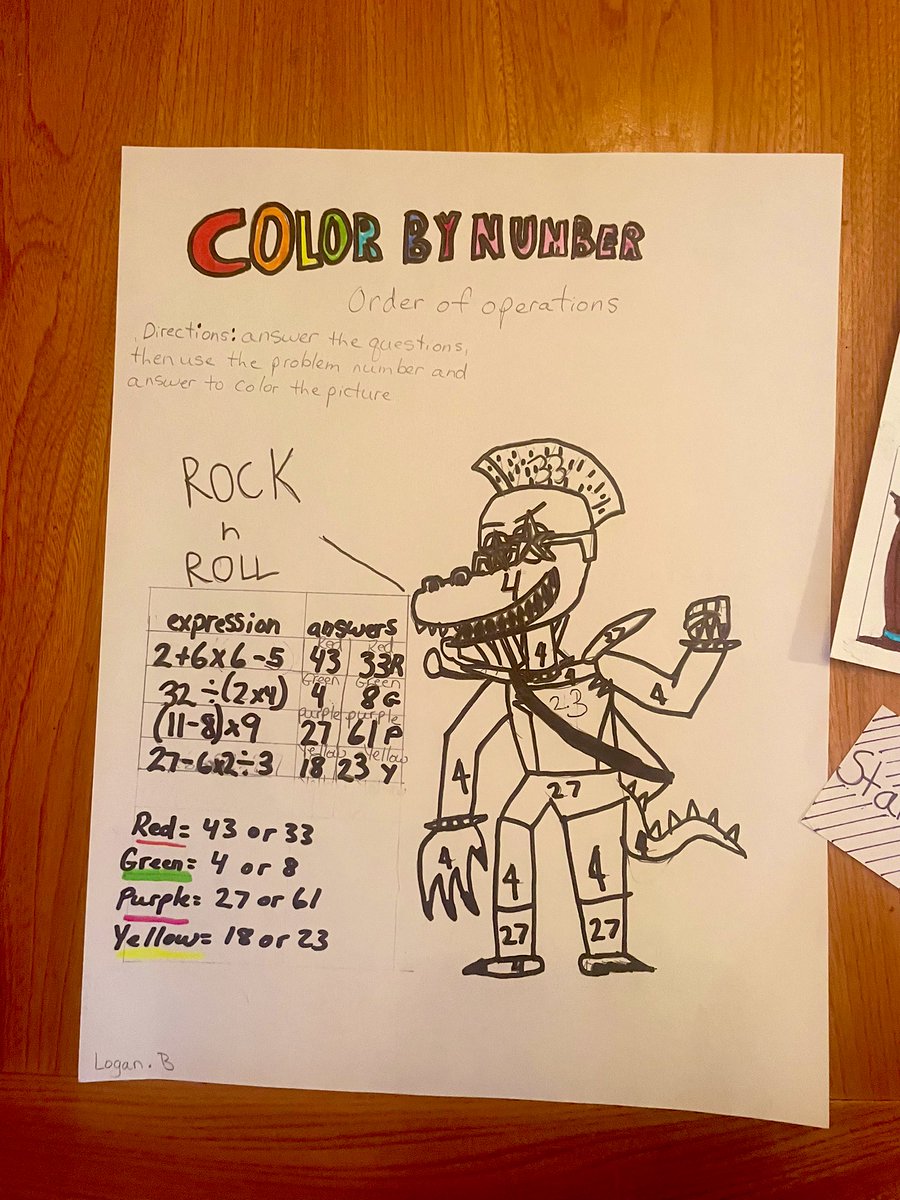 COLOR BY NUMBER
Order of operations
Directions: answer the questions,
then use the problem number and
answer to color the picture
ROCK
n
ROLL
expression answers
Red Red
2+6x6-5 43 33R
Green Green
32÷(2x4) 4 8 G
purple purple
(11-8)x9 27 61 P
Yellow Yellow
27-6x2÷3 18 23 Y
Red= 43 or 33
Green= 4 or 8
Purple= 27 or 61
Yellow= 18 or 23
33
4
4
4
27
4
23
4
27
4
4
4
4
27
27
4
Logan. B
Sta